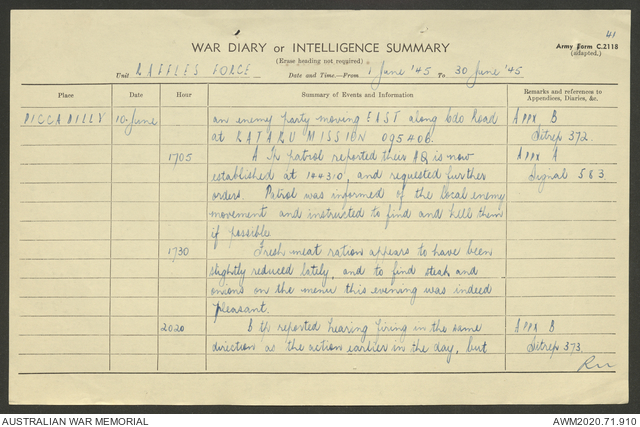 41
WAR DIARY or INTELLIGENCE SUMMARY
Army Form C.2118
(adapted.)
(Erase heading not required)
Unit RAFFLES FORCE Date and Time—From 1 June '45 To 30 June '45
Place Date Hour Summary of Events and Information Remarks and references to Appendices, Diaries, &c.
PICCADILLY 10 June an enemy party moving EAST along Cdo Road APPX B
at RATARU MISSION 095406. Sitrep 372.
1705 A Tp patrol reported their HQ is now APPX A
established at 144310, and requested further Signal 583
orders. Patrol was informed of the local enemy
movement and instructed to find and kill them
if possible
1730 Fresh meat ration appears to have been
slightly reduced lately, and to find steak and
onions on the menu this evening was indeed
pleasant.
2020 B Tp reported hearing firing in the same APPX B
direction as the action earlier in the day, but Sitrep 373.
AUSTRALIAN WAR MEMORIAL
AWM2020.71.910